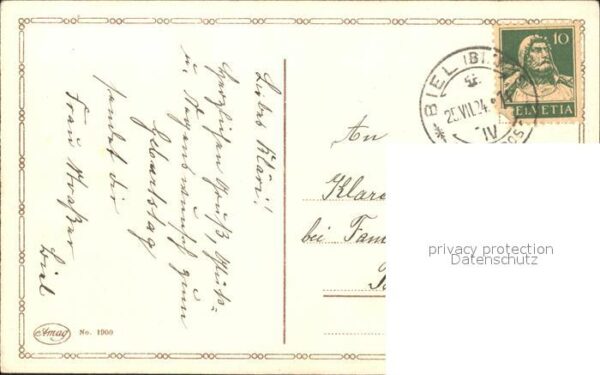 Liebes Kläri!
Herzlichen Gruß, Glück-
u. Segenswunsch zum
Geburtstag
sendet dir
Frau
Biel
Amag No. 1960
10
HELVETIA
BIEL (BI
25.VII.24
IV
An
Klare
bei Fam
privacy protection
Datenschutz